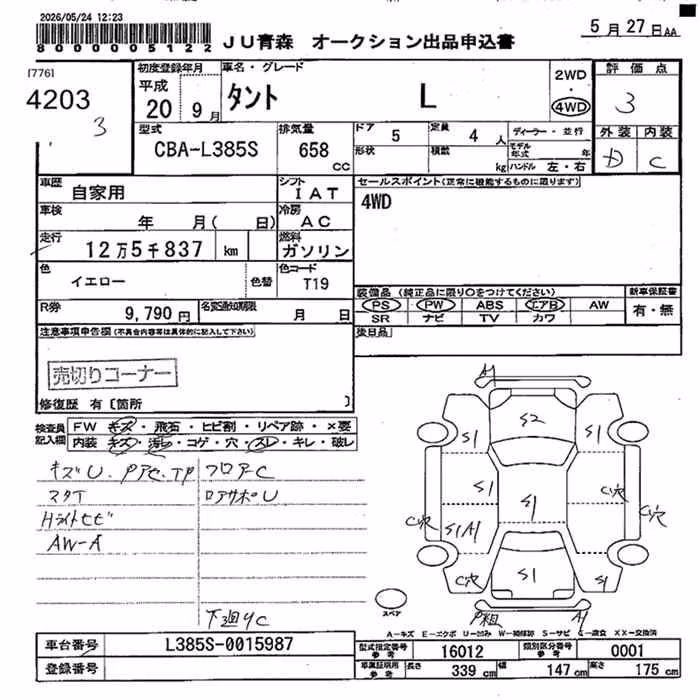 2026/05/24 12:23
8000000005122
JU青森 オークション出品申込書
5月27日AA
[776]
4203
3
初度登録年月
平成
20 9月
車名・グレード
タント L
2WD
・
4WD
評価点
3
外装 内装
D C
型式
CBA-L385S
排気量
658 CC
ドア 5
定員 4 人
ディーラー・並行
形状
積載 kg
モデル年式 年
ハンドル 左・右
車歴 自家用
シフト IAT
セールスポイント(正常に機能するものに限ります)
4WD
車検 年 月( 日)
冷房 AC
走行 12万5千837 km
燃料 ガソリン
色 イエロー
色替
色コード T19
装備品 (純正品に限り○をつけてください)
新車保証書
PS PW ABS エアB AW
有・無
SR ナビ TV カワ
R券 9,790円
名変通知期限 月 日
後日品
注意事項申告欄(不具合内容等は具体的に記入して下さい)
売切りコーナー
修復歴 有〔箇所 〕
検査員記入欄
FW キズ・飛石・ヒビ割・リペア跡・×要
内装 キズ・汚れ・コゲ・穴・スレ・キレ・破レ
キズU. Pアセ.TP フロアーC
スタT ロアサポU
Hライトヒビ
AW-A
下廻りC
A1
S2
S1
S1
S1
S1
C穴
C穴
C穴
S1A1
C穴
S1
S1
P粗
A1
スペア
A-キズ E-エクボ U-凹み W-補修跡 S-サビ C-腐食 XX-交換済
車台番号 L385S-0015987
登録番号
型式指定番号 参考 16012
類別区分番号 参考 0001
車庫証明用 参考 長さ 339 cm 幅 147 cm 高さ 175 cm